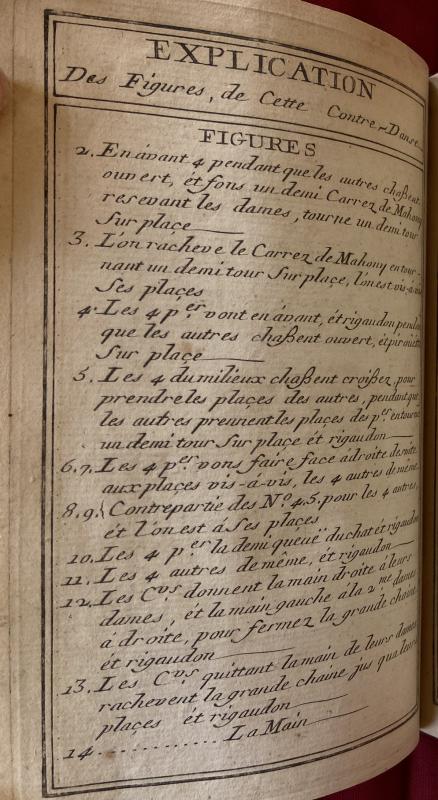 EXPLICATION
Des Figures, de Cette Contre-Danse
FIGURES
2. En ávant 4 pendant que les autres chaßent
ouvert, ét fons un demi Carrez de Mahony
resevant les dames, tourne un demi tour
Sur plaçe
3. L'on racheve le Carrez de Mahony en tour-
nant un demi tour Sur plaçe, l'on est vis-á-vis
Ses plaçes
4. Les 4 p.ers vont en ávant, ét rigaudon pendant
que les autres chaßent ouvert, ét pirouette
Sur plaçe
5. Les 4 du milieux chaßent croißez, pour
prendre les plaçes des autres, pendant que
les autres prennent les plaçes des p.ers en tournant
un demi tour Sur plaçe ét rigaudon
6.7. Les 4 p.ers vons faire face a droite de suite
aux plaçes vis-á-vis, les 4 autres de même,
8.9. Contrepartie des N.o 4.5. pour les 4 autres,
ét l'on est á Ses plaçes
10. Les 4 p.ers la demi queüe du chat ét rigaudon
11. Les 4 autres de même, ét rigaudon
12. Les C.vrs donnent la main droite á leurs
dames, ét la main gauche á la 2.me dames
á droite, pour fermez la grande chaine
ét rigaudon
13. Les C.vrs quittant la main de leurs dames
rachevent la grande chaine jus qua leurs
plaçes ét rigaudon
14 ............ La Main